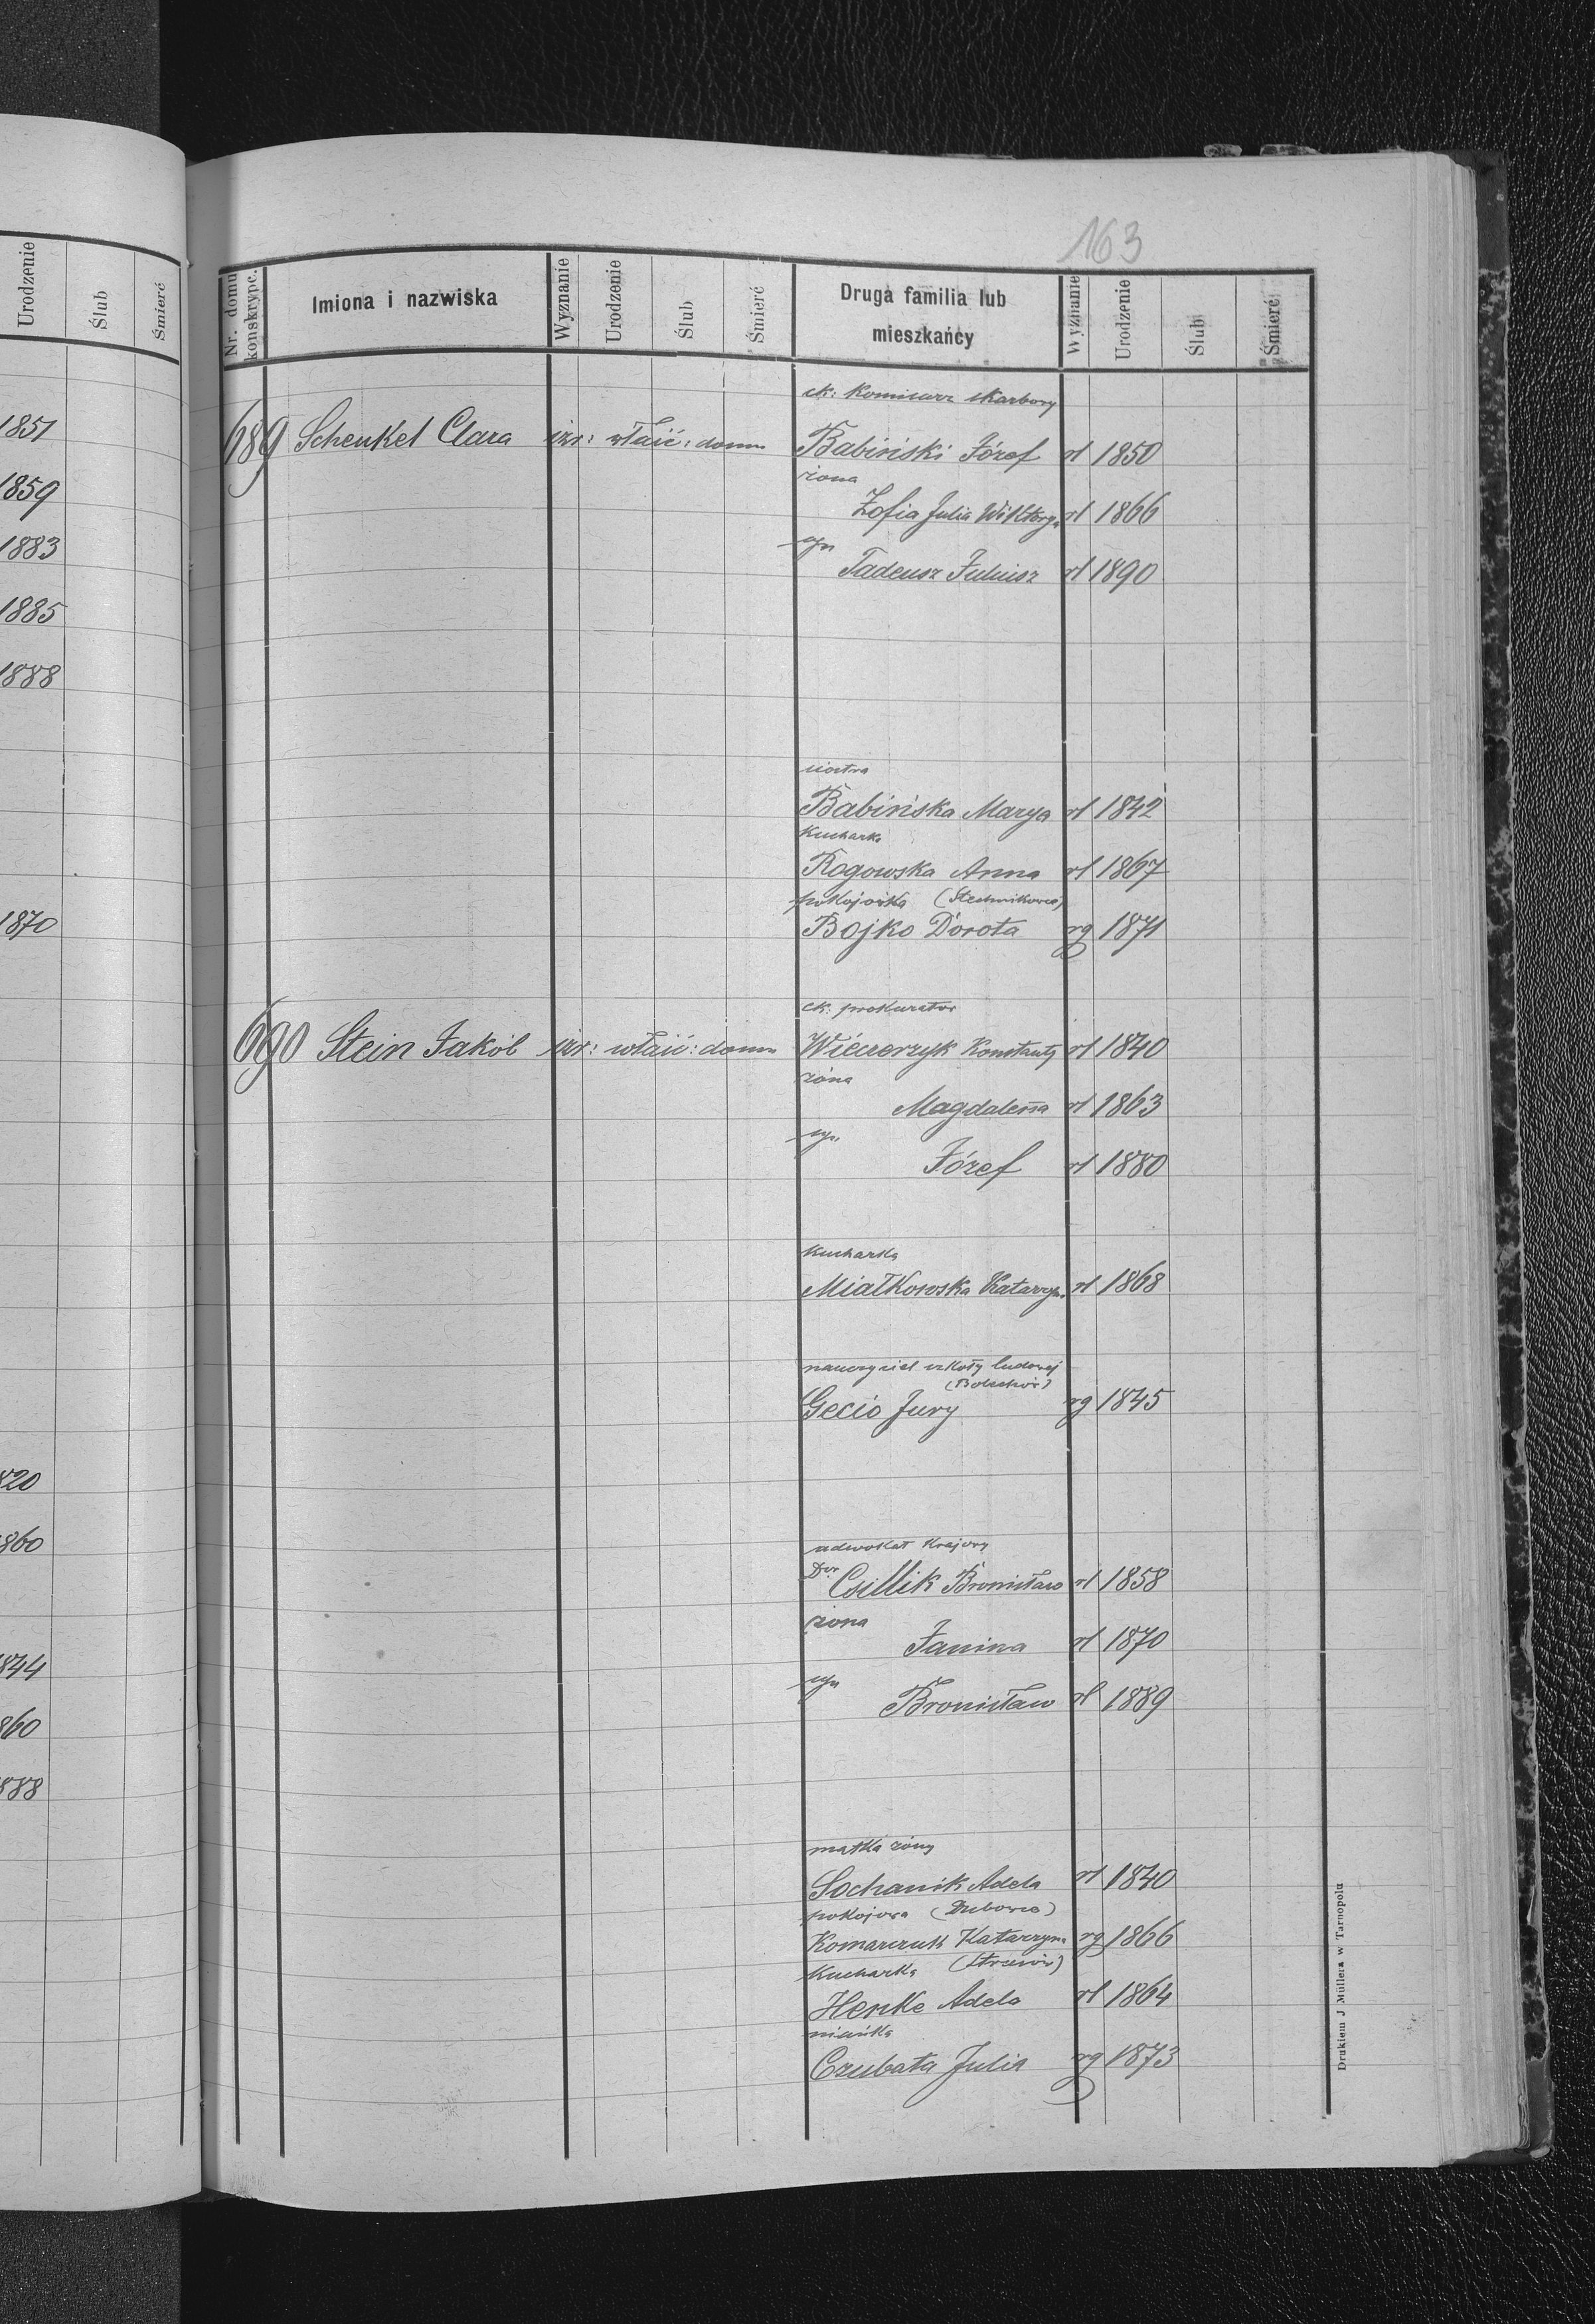 Urodzenie
Ślub
Śmierć
1851
1859
1883
1885
1888
1870
820
860
844
860
888
163
Nr. domu konskrypc.
Imiona i nazwiska
Wyznanie
Urodzenie
Ślub
Śmierć
Druga familia lub mieszkańcy
Wyznanie
Urodzenie
Ślub
Śmierć
ck: Komisarz skarbowy
689 Schenkel Clara izr: właść: domu Babiński Józef rł 1850
żona
Zofia Julia Wiktorya rł 1866
syn
Tadeusz Juliusz rł 1890
siostra
Babińska Marya rł 1842
Kucharka
Rogowska Anna rł 1867
pokojówka
Bojko Dorota rg 1871
ck: prokurator
690 Stein Jakób izr: właść: domu Wieczerzyk Konstanty rł 1840
żona
Magdalena rł 1863
syn
Józef rł 1880
Kucharka
Miałkowska Katarzyna rł 1868
nauczyciel szkoły ludowej
Gecio Jury rg 1845
adwokat Krajowy
Dr Csillik Bronisław rł 1858
żona
Janina rł 1870
syn
Bronisław rł 1889
matka żony
Sochanik Adela rł 1840
pokojowa (Dubowce)
Komarczuk Katarzyna rg 1866
Kucharka
Henke Adela rł 1864
niańka
Czubata Julia rg 1873
Drukiem J Müllera w Tarnopolu